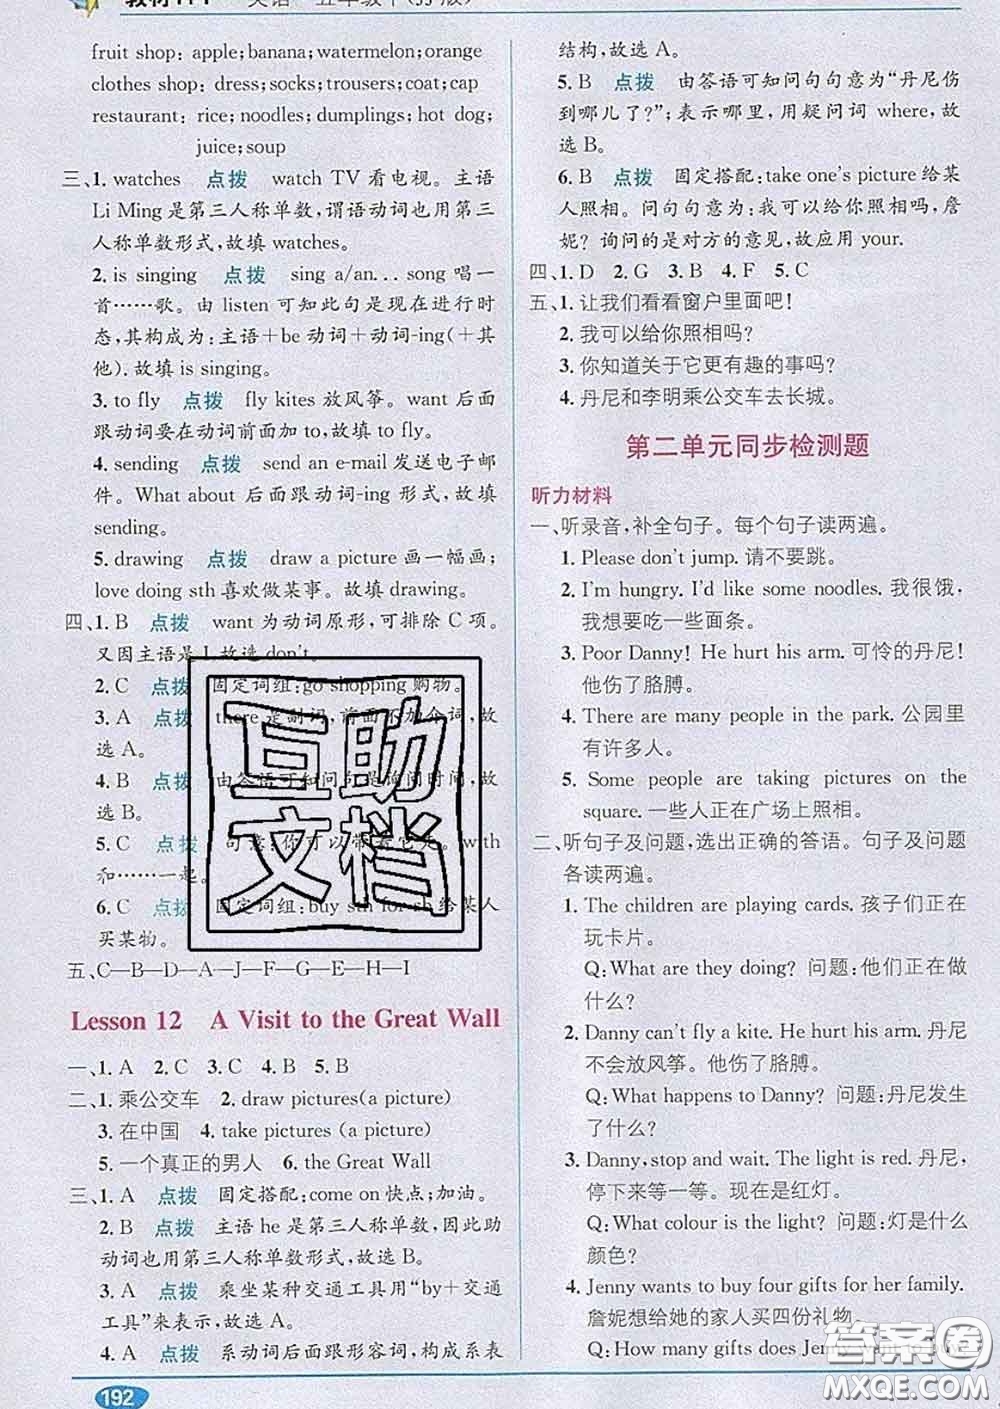 教材1+1 英语 五年级下(JJ版)
fruit shop: apple;banana;watermelon;orange
clothes shop: dress;socks;trousers;coat;cap
restaurant: rice;noodles;dumplings;hot dog;
juice;soup
三、1. watches 点拨 watch TV 看电视。主语
Li Ming 是第三人称单数,谓语动词也用第三
人称单数形式,故填 watches。
2. is singing 点拨 sing a/an... song 唱一
首……歌。由 listen 可知此句是现在进行时
态,其构成为:主语+be 动词+动词-ing(+其
他).故填 is singing。
3. to fly 点拨 fly kites 放风筝。want 后面
跟动词要在动词前面加 to,故填 to fly。
4. sending 点拨 send an e-mail 发送电子邮
件。What about 后面跟动词-ing 形式,故填
sending。
5. drawing 点拨 draw a picture 画一幅画;
love doing sth 喜欢做某事。故填 drawing。
四、1. B 点拨 want 为动词原形,可排除 C 项。
又因主语是 I,故选 don't。
2. C 点拨 固定词组:go shopping 购物。
3. A 点拨 there 是副词,前面不加介词,故
选 A。
4. B 点拨 由答语可知问句是询问时间,故
选 B。
5. C 点拨 句意:你可以带着它走。with
和……一起。
6. C 点拨 固定词组:buy sth for sb 给某人
买某物。
五、C—B—D—A—J—F—G—E—H—I
Lesson 12 A Visit to the Great Wall
一、1. A 2. C 3. C 4. B 5. B
二、1. 乘公交车 2. draw pictures(a picture)
3. 在中国 4. take pictures (a picture)
5. 一个真正的男人 6. the Great Wall
三、1. A 点拨 固定搭配:come on 快点;加油。
2. B 点拨 主语 he 是第三人称单数,因此助
动词也用第三人称单数形式,故选 B。
3. A 点拨 乘坐某种交通工具用"by+交通
工具"来表示,故选 A。
4. A 点拨 系动词后面跟形容词,构成系表
192
结构,故选 A。
5. B 点拨 由答语可知问句句意为"丹尼伤
到哪儿了?";表示哪里,用疑问词 where,故
选 B。
6. B 点拨 固定搭配:take one's picture 给某
人照相。问句句意为:我可以给你照相吗,詹
妮? 询问的是对方的意见,故应用 your.
四、1. D 2. G 3. B 4. F 5. C
五、1. 让我们看看窗户里面吧!
2. 我可以给你照相吗?
3. 你知道关于它更有趣的事吗?
4. 丹尼和李明乘公交车去长城。
第二单元同步检测题
听力材料
一、听录音,补全句子。每个句子读两遍。
1. Please don't jump. 请不要跳。
2. I'm hungry. I'd like some noodles. 我很饿,
我想要吃一些面条。
3. Poor Danny! He hurt his arm. 可怜的丹尼!
他伤了胳膊。
4. There are many people in the park. 公园里
有许多人。
5. Some people are taking pictures on the
square. 一些人正在广场上照相。
二、听句子及问题,选出正确的答语。句子及问题
各读两遍。
1. The children are playing cards. 孩子们正在
玩卡片。
Q:What are they doing? 问题:他们正在做
什么?
2. Danny can't fly a kite. He hurt his arm. 丹尼
不会放风筝。他伤了胳膊。
Q:What happens to Danny? 问题:丹尼发生
了什么?
3. Danny,stop and wait. The light is red. 丹尼,
停下来等一等。现在是红灯。
Q:What colour is the light? 问题:灯是什么
颜色?
4. Jenny wants to buy four gifts for her family.
詹妮想给她的家人买四份礼物。
Q:How many gifts does Jenny want to buy?
互助
文档
答案圈
MXQE.COM